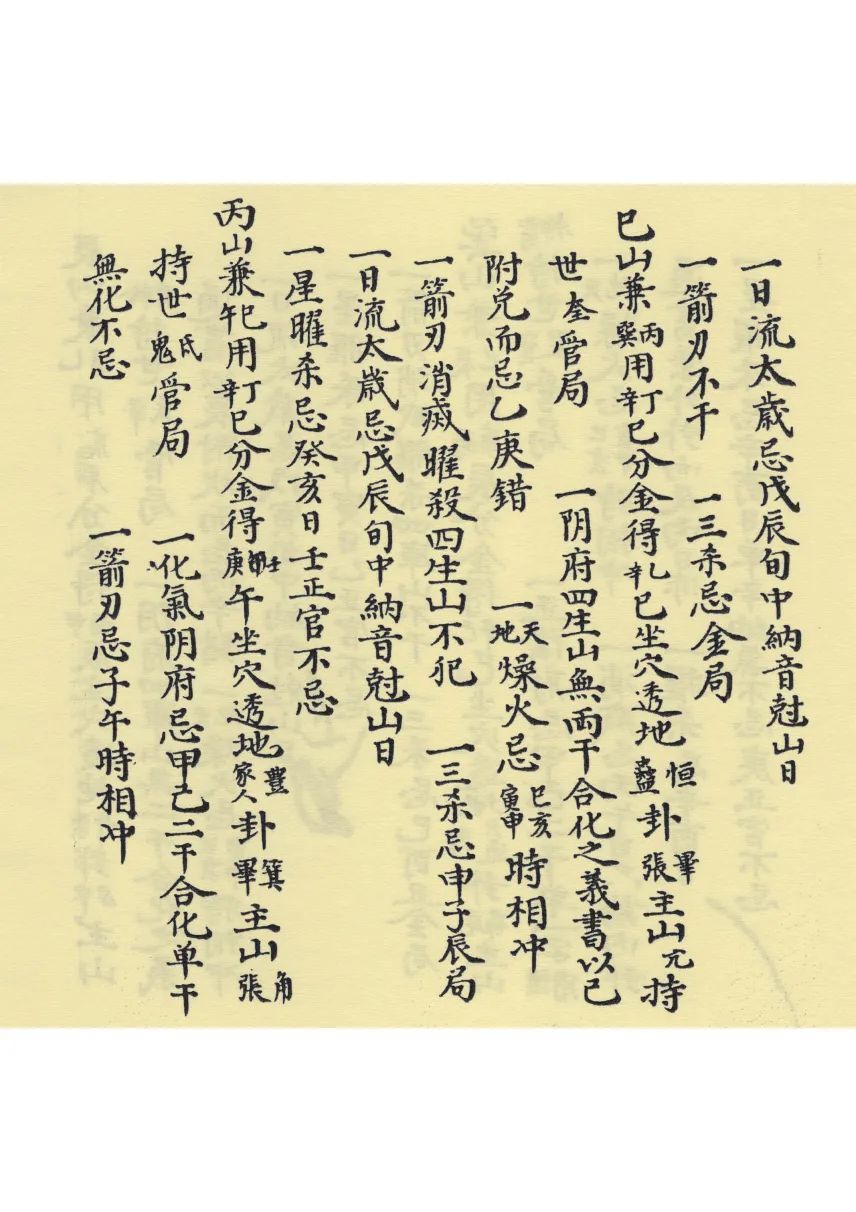 一日流太歲忌戊辰旬中納音尅山日
一箭刃不干　一三杀忌金局
巳山兼丙巽用丁辛巳分金得乙辛巳坐穴透地恒蠱卦畢張主山亢持
世奎管局　一阴府四生山無兩干合化之義書以巳
附兌而忌乙庚錯　一天地燥火忌巳亥寅申時相冲
一箭刃消滅曜殺四生山不犯　一三杀忌申子辰局
一日流太歲忌戊辰旬中納音尅山日
一星曜杀忌癸亥日壬正官不忌
丙山兼午巳用丁辛巳分金得庚午坐穴透地豐家人卦箕畢主山角張
持世氐鬼管局　一化氣阴府忌甲己二干合化单干
無化不忌　一箭刃忌子午時相冲